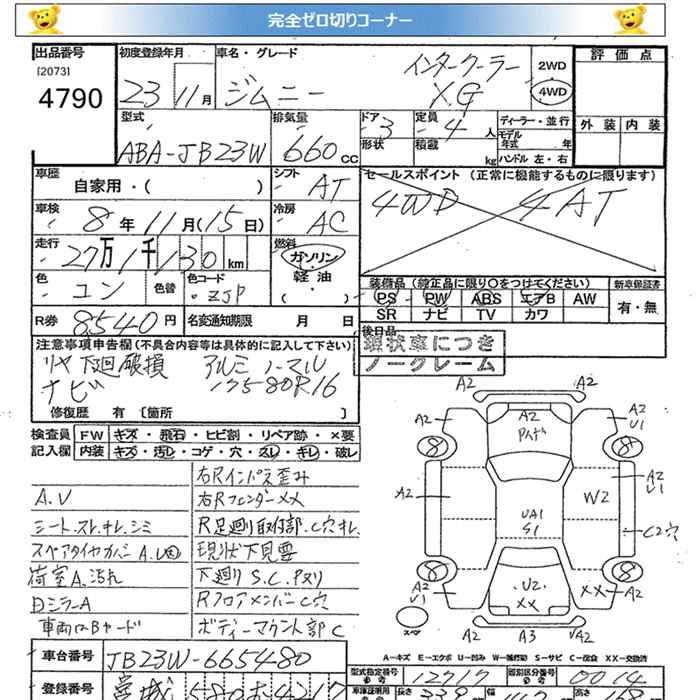 完全ゼロ切りコーナー
出品番号
[2073]
4790
初度登録年月
23 11月
車名・グレード
ジムニー インタークーラー XG
2WD
4WD
評価点
外装 内装
型式
ABA-JB23W
排気量
660cc
ドア
3
定員
4人
形状
積載
kg
ディーラー・並行
モデル年式 年
ハンドル 左・右
車歴
自家用・( )
シフト
AT
セールスポイント(正常に機能するものに限ります)
4WD 4AT
車検
8年11月(15日)
冷房
AC
走行
27万1千130km
燃料
ガソリン
軽油
( )
色
コン
色替
色コード
ZJP
装備品(純正品に限り〇をつけてください)
PS PW ABS エアB AW
SR ナビ TV カワ
新車保証書
有・無
R券
8540円
名変通知期限 月 日
後日品
現状車につき
ノークレーム
注意事項申告欄(不具合内容等は具体的に記入して下さい)
リヤ下廻破損 アルミ ノーマル
ナビ 17580R16
修復歴 有 [箇所 ]
検査員
記入欄
FW キズ・飛石・ヒビ割・リペア跡・×要
内装 キズ・汚レ・コゲ・穴・スレ・キレ・破レ
右Rインパネ歪み
A.V
右Rフェンダー××
シートスレ.キレ.シミ
R足廻り取付部.C穴
スペアタイヤカバー A.U
現状下見要
荷室A.汚れ
下廻り S.C.Pヌリ
日ミラーA
RフロアメンバーC穴
車両ロBヤード
ボディーマウント部C
A2
A2
A2
A2
U1
A2
W2
A2
U1
UA1
S1
C2穴
A2
U1
U2
××
××
A2
U1
A2
A3
UA2
8
8
8
8
スペア
A-キズ E-エクボ U-凹み W-補修跡 S-サビ C-腐食 XX-交換済
車台番号
JB23W-665480
型式指定番号
12717
類別区分番号
0014
登録番号
宮城 580
長さ
339
幅